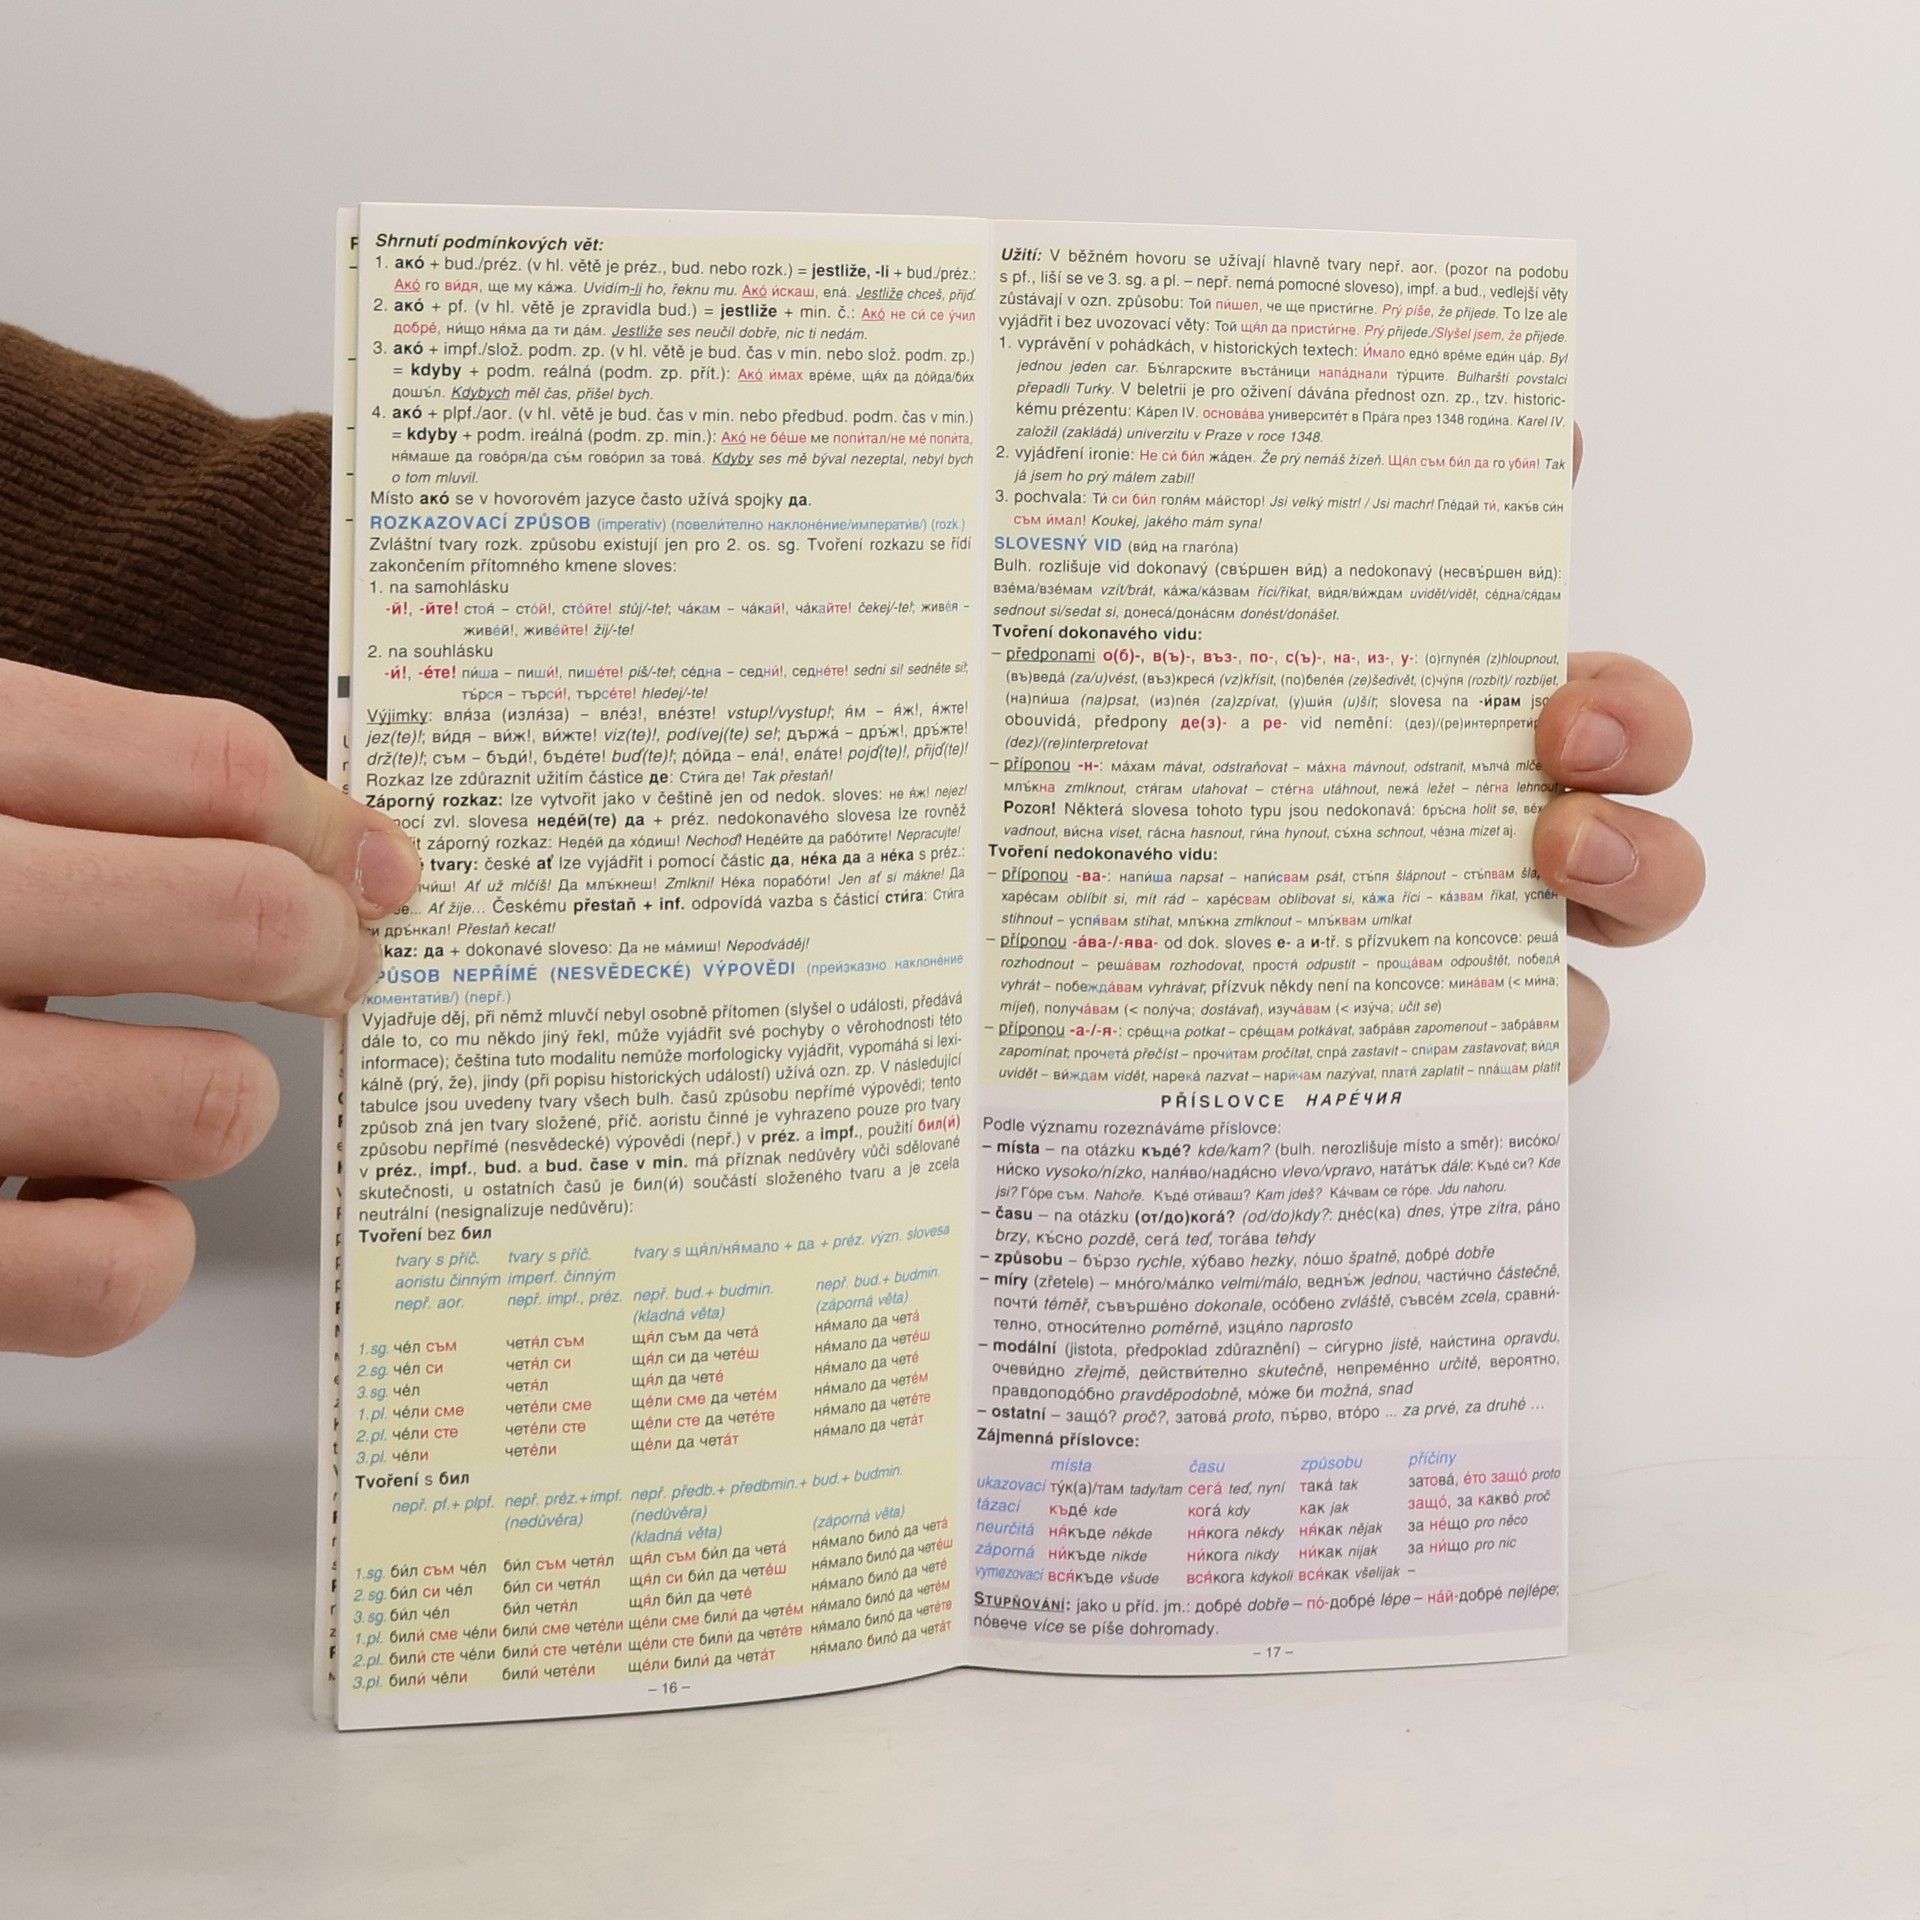 Shrnutí podmínkových vět:
1. акó + bud./préz. (v hl. větě je préz., bud. nebo rozk.) = jestliže, -li + bud./préz.:
Акó го вúдя, ще му кáжа. Uvidím-li ho, řeknu mu. Акó úскаш, елá. Jestliže chceš, přijď.
2. акó + pf. (v hl. větě je zpravidla bud.) = jestliže + min. č.: Акó не сú се ýчил
добрé, нúщо нямa да ти дáм. Jestliže ses neučil dobře, nic ti nedám.
3. акó + impf./slož. podm. zp. (v hl. větě je bud. čas v min. nebo slož. podm. zp.)
= kdyby + podm. reálná (podm. zp. přít.): Акó úмах врéме, щя́х да дóйда/бúх
дошъ́л. Kdybych měl čas, přišel bych.
4. акó + plpf./aor. (v hl. větě je bud. čas v min. nebo předbud. podm. čas v min.)
= kdyby + podm. ireálná (podm. zp. min.): Акó не бéше ме попúтал/не мé попúта,
ня́маше да говóря/да съ́м говóрил за товá. Kdyby ses mě býval nezeptal, nebyl bych
o tom mluvil.
Místo акó se v hovorovém jazyce často užívá spojky да.
ROZKAZOVACÍ ZPŮSOB (imperativ) (повелúтелно наклонéние/императúв/) (rozk.)
Zvláštní tvary rozk. způsobu existují jen pro 2. os. sg. Tvoření rozkazu se řídí
zakončením přítomného kmene sloves:
1. na samohlásku
-й!, -йте! стоя́ – стóй!, стóйте! stůj/-te!; чáкам – чáкай!, чáкайте! čekej/-te!; живéя –
живéй!, живéйте! žij/-te!
2. na souhlásku
-ú!, -éте! пúша – пишú!, пишéте! piš/-te!; сéдна – седнú!, седнéте! sedni si! sedněte si!;
тъ́рся – търсú!, търсéте! hledej/-te!
Výjimky: вля́за (изля́за) – влéз!, влéзте! vstup!/vystup!; я́м – я́ж!, я́жте!
jez(te)!; вúдя – вúж!, вúжте! viz(te)!, podívej(te) se!; държá – дръ́ж!, дръ́жте!
drž(te)!; съм – бъдú!, бъдéте! buď(te)!; дóйда – елá!, елáте! pojď(te)!, přijď(te)!
Rozkaz lze zdůraznit užitím částice де: Стúга де! Tak přestaň!
Záporný rozkaz: lze vytvořit jako v češtině jen od nedok. sloves: не я́ж! nejez!
ocí zvl. slovesa недéй(те) да + préz. nedokonavého slovesa lze rovněž
t záporný rozkaz: Недéй да хóдиш! Nechoď! Недéйте да рабóтите! Nepracujte!
tvary: české ať lze vyjádřit i pomocí částic да, нéка да a нéка s préz.:
чúш! Ať už mlčíš! Да млъ́кнеш! Zmlkni! Нéка порабóти! Jen ať si mákne! Да
е... Ať žije... Českému přestaň + inf. odpovídá vazba s částicí стúга: Стúга
и дръ́нкал! Přestaň kecat!
kaz: да + dokonavé sloveso: Да не мáмиш! Nepodváděj!
PŮSOB NEPŘÍMÉ (NESVĚDECKÉ) VÝPOVĚDI (преúзказно наклонéние
/коментатúв/) (nepř.)
Vyjadřuje děj, při němž mluvčí nebyl osobně přítomen (slyšel o události, předává
dále to, co mu někdo jiný řekl, může vyjádřit své pochyby o věrohodnosti této
informace); čeština tuto modalitu nemůže morfologicky vyjádřit, vypomáhá si lexi-
kálně (prý, že), jindy (při popisu historických událostí) užívá ozn. zp. V následující
tabulce jsou uvedeny tvary všech bulh. časů způsobu nepřímé výpovědi; tento
způsob zná jen tvary složené, příč. aoristu činné je vyhrazeno pouze pro tvary
způsobu nepřímé (nesvědecké) výpovědi (nepř.) v préz. a impf., použití бил(ú)
v préz., impf., bud. a bud. čase v min. má příznak nedůvěry vůči sdělované
skutečnosti, u ostatních časů je бил(ú) součástí složeného tvaru a je zcela
neutrální (nesignalizuje nedůvěru):
Tvoření bez бил
tvary s příč. tvary s příč. tvary s щя́л/ня́мало + да + préz. význ. slovesa
aoristu činným imperf. činným
nepř. aor. nepř. impf., préz. nepř. bud.+ budmin. nepř. bud.+ budmin.
(kladná věta) (záporná věta)
1.sg. чéл съм четя́л съм щя́л съм да четá ня́мало да четá
2.sg. чéл си четя́л си щя́л си да четéш ня́мало да четéш
3.sg. чéл четя́л щя́л да четé ня́мало да четé
1.pl. чéли сме четéли сме щéли сме да четéм ня́мало да четéм
2.pl. чéли сте четéли сте щéли сте да четéте ня́мало да четéте
3.pl. чéли четéли щéли да четáт ня́мало да четáт
Tvoření s бил
nepř. pf.+ plpf. nepř. préz.+impf. nepř. předb.+ předbmin.+ bud.+ budmin.
(nedůvěra) (nedůvěra)
(kladná věta) (záporná věta)
1.sg. бúл съм чéл бúл съм четя́л щя́л съм бúл да четá ня́мало билó да четá
2.sg. бúл си чéл бúл си четя́л щя́л си бúл да четéш ня́мало билó да четéш
3.sg. бúл чéл бúл четя́л щя́л бúл да четé ня́мало билó да четé
1.pl. билú сме чéли билú сме четéли щéли сме билú да четéм ня́мало билó да четéм
2.pl. билú сте чéли билú сте четéли щéли сте билú да четéте ня́мало билó да четéте
3.pl. билú чéли билú четéли щéли билú да четáт ня́мало билó да четáт
– 16 –
Užití: V běžném hovoru se užívají hlavně tvary nepř. aor. (pozor na podobu
s pf., liší se ve 3. sg. a pl. – nepř. nemá pomocné sloveso), impf. a bud., vedlejší věty
zůstávají v ozn. způsobu: Той пúшел, че ще пристúгне. Prý píše, že přijede. To lze ale
vyjádřit i bez uvozovací věty: Той щя́л да пристúгне. Prý přijede./Slyšel jsem, že přijede.
1. vyprávění v pohádkách, v historických textech: И́мало еднó врéме едúн цáр. Byl
jednou jeden car. Бъ́лгарските въстáници нападнали тýрците. Bulharští povstalci
přepadli Turky. V beletrii je pro oživení dávána přednost ozn. zp., tzv. historic-
kému prézentu: Кáрел IV. основáва университéт в Прáга през 1348 годúна. Karel IV.
založil (zakládá) univerzitu v Praze v roce 1348.
2. vyjádření ironie: Не сú бúл жáден. Že prý nemáš žízeň. Щя́л съм бúл да го убúя! Tak
já jsem ho prý málem zabil!
3. pochvala: Тú си бúл голя́м мáйстор! Jsi velký mistr! / Jsi machr! Глéдай тú, какъ́в сúн
съм úмал! Koukej, jakého mám syna!
SLOVESNÝ VID (вúд на глагóла)
Bulh. rozlišuje vid dokonavý (свъ́ршен вúд) a nedokonavý (несвъ́ршен вúд):
взéма/взéмам vzít/brát, кáжа/кáзвам říci/říkat, вúдя/вúждам uvidět/vidět, сéдна/ся́дам
sednout si/sedat si, донесá/донáсям donést/donášet.
Tvoření dokonavého vidu:
– předponami о(б)-, в(ъ)-, въз-, по-, с(ъ)-, на-, из-, у-: (о)глупéя (z)hloupnout,
(въ)ведá (za/u)vést, (въз)креся́ (vz)křísit, (по)белéя (ze)šedivět, (с)чýпя (rozbít)/ rozbíjet,
(на)пúша (na)psat, (из)пéя (za)zpívat, (у)шúя (u)šít; slovesa na -úрам
obouvidá, předpony де(з)- a ре- vid nemění: (дез)/(ре)интерпретúр
(dez)/(re)interpretovat
– příponou -н-: мáхам mávat, odstraňovat – мáхна mávnout, odstranit, мълчá mlče
млъ́кна zmlknout, стя́гам utahovat – стéгна utáhnout, лежá ležet – лéгна lehnout
POZOR! Některá slovesa tohoto typu jsou nedokonavá: бръ́сна holit se, вéх
vadnout, вúсна viset, гáсна hasnout, гúна hynout, съ́хна schnout, чéзна mizet aj.
Tvoření nedokonavého vidu:
– příponou -ва-: напúша napsat – напúсвам psát, стъ́пя šlápnout – стъ́пвам šla
харéсам oblíbit si, mít rád – харéсвам oblibovat si, кáжа říci – кáзвам říkat, успéя
stihnout – успя́вам stíhat, млъ́кна zmlknout – млъ́квам umlkat
– příponou -áва-/-ява- od dok. sloves е- a и-tř. s přízvukem na koncovce: решá
rozhodnout – решáвам rozhodovat, простя́ odpustit – прощáвам odpouštět, победя́
vyhrát – побеждáвам vyhrávat; přízvuk někdy není na koncovce: минáвам (< мúна;
míjet), получáвам (< полýча; dostávat), изучáвам (< изýча; učit se)
– příponou -а-/-я-: срéщна potkat – срéщам potkávat, забрáвя zapomenout – забрáвям
zapomínat; прочетá přečíst – прочúтам pročítat, спрá zastavit – спúрам zastavovat; вúдя
uvidět – вúждам vidět, нарекá nazvat – нарúчам nazývat, платя́ zaplatit – плáщам platit
PŘÍSLOVCE НАРÉЧИЯ
Podle významu rozeznáváme příslovce:
– místa – na otázku къдé? kde/kam? (bulh. nerozlišuje místo a směr): висóко/
нúско vysoko/nízko, наля́во/надя́сно vlevo/vpravo, натáтък dále: Къдé си? Kde
jsi? Гóре съм. Nahoře. Къдé отúваш? Kam jdeš? Кáчвам се гóре. Jdu nahoru.
– času – na otázku (от/до)когá? (od/do)kdy?: днéс(ка) dnes, ýтре zítra, рáно
brzy, къ́сно pozdě, сегá teď, тогáва tehdy
– způsobu – бъ́рзо rychle, хýбаво hezky, лóшо špatně, добрé dobře
– míry (zřetele) – мнóго/мáлко velmi/málo, веднъ́ж jednou, частúчно částečně,
почтú téměř, съвършéно dokonale, осóбено zvláště, съвсéм zcela, сравнú-
телно, относúтелно poměrně, изця́ло naprosto
– modální (jistota, předpoklad zdůraznění) – сúгурно jistě, наúстина opravdu,
очевúдно zřejmě, действúтелно skutečně, непремéнно určitě, вероятно,
правдоподóбно pravděpodobně, мóже би možná, snad
– ostatní – защó? proč?, затовá proto, пъ́рво, втóро ... za prvé, za druhé ...
Zájmenná příslovce:
místa času způsobu příčiny
ukazovací тýк(а)/там tady/tam сегá teď, nyní такá tak затовá, éто защó proto
tázací къдé kde когá kdy как jak защó, за каквó proč
neurčitá ня́къде někde ня́кога někdy ня́как nějak за нéщо pro něco
záporná нúкъде nikde нúкога nikdy нúкак nijak за нúщо pro nic
vymezovací вся́къде všude вся́кога kdykoli вся́как všelijak –
STUPŇOVÁNÍ: jako u příd. jm.: добрé dobře – пó-добрé lépe – нáй-добрé nejlépe;
пóвече více se píše dohromady.
– 17 –